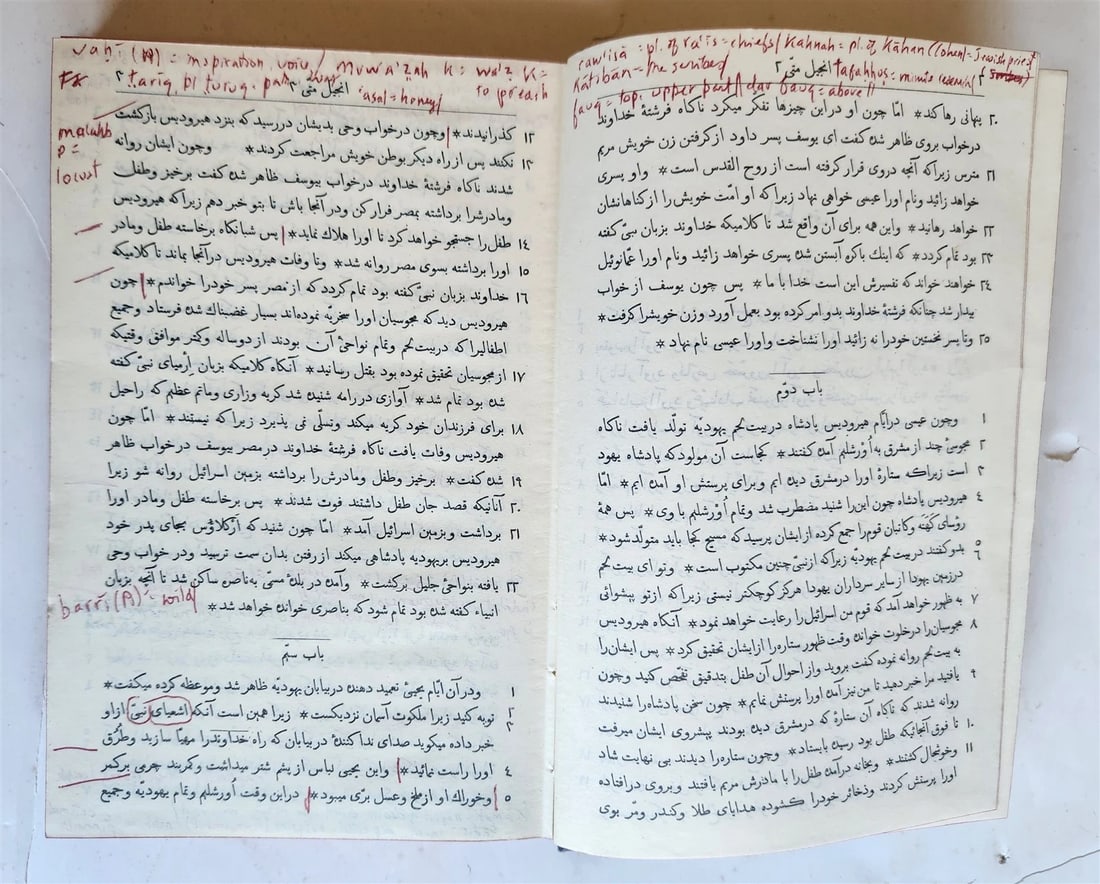 rawisā = pl. of ra'is = chiefs/ Kahnah = pl. of Kāhan (Cohen) = Jewish priest
Kātibān = the scribes/
انجیل متّی ۲
faug = top; upper part/ dar faug = above
۲۰ پنهانی رها کند * امّا چون او در این چیزها تفکر میکرد ناکاه فرشتهٔ خداوند
درخواب بروی ظاهر شده کفت ای یوسف پسر داود از کرفتن زن خویش مریم
۲۱ مترس زیرا که آنچه در وی قرار کرفته است از روح القدس است * واو پسری
خواهد زائید ونام اورا عیسی خواهی نهاد زیرا که او امّت خویش را از کناهانشان
۲۲ خواهد رهانید * واین همه برای آن واقع شد تا کلامیکه خداوند بزبان نبیّ کفته
۲۳ بود تمام کردد * که اینك باکره آبستن شده پسری خواهد زائید ونام اورا عمّانوئیل
۲۴ خواهند خواند که تفسیرش این است خدا با ما * پس چون یوسف از خواب
بیدار شد چنانکه فرشتهٔ خداوند بدو امر کرده بود بعمل آورد وزن خویشرا کرفت *
۲۵ وتا پسر نخستین خودرا نه زائید اورا نشناخت واورا عیسی نام نهاد *
باب دوّم
۱ وچون عیسی درایّام هیرودیس پادشاه در بیت لحم یهودیه تولّد یافت ناکاه
۲ مجوسیٔ چند از مشرق به اُوْرشلیم آمده کفتند * کجاست آن مولود که پادشاه یهود
۳ است زیرا که ستارهٔ اورا در مشرق دیده ایم وبرای پرستش او آمده ایم * امّا
۴ هیرودیس پادشاه چون این را شنید مضطرب شد وتمام اُوْرشلیم با وی * پس همهٔ
رؤسای کَهَنَه وکاتبان قوم را جمع کرده از ایشان پرسید که مسیح کجا باید متولّد شود *
۵ ۶ بدو کفتند در بیت لحم یهودیّه زیرا که از نبیّ چنین مکتوب است * وتو ای بیت لحم
در زمین یهودا از سایر سرداران یهودا هرکز کوچکتر نیستی زیرا که از تو پیشوائی
۷ به ظهور خواهد آمد که قوم من اسرائیل را رعایت خواهد نمود * آنکاه هیرودیس
۸ مجوسیان را در خلوت خوانده وقت ظهور ستاره را از ایشان تحقیق کرد * پس ایشان را
به بیت لحم روانه نموده کفت بروید واز احوال آن طفل بتدقیق تفحّص کنید وچون
۹ یافتید مرا خبر دهید تا من نیز آمده اورا پرستش نمایم * چون سخن پادشاه را شنیدند
روانه شدند که ناکاه آن ستارهٔ که در مشرق دیده بودند پیشروی ایشان میرفت
۱۰ تا فوق آنجائیکه طفل بود رسیده بایستاد * وچون ستاره را دیدند بی نهایت شاد
۱۱ وخوشحال کشتند * وبخانه در آمده طفل را با مادرش مریم یافتند وبروی در افتاده
اورا پرستش کردند وذخائر خودرا کشوده هدایای طلا وکندر ومرّ بوی
vaḥi (A) = inspiration, voice/ muwa'zah K = wa'z K =
to preach
tarīq pl turug = path
انجیل متّی ۲
'asal = honey/
malakh
P =
locust
۱۲ کذرانیدند * وچون درخواب وحی بدیشان در رسید که بنزد هیرودیس بازکشت
۱۳ نکنند پس از راه دیکر بوطن خویش مراجعت کردند * وچون ایشان روانه
شدند ناکاه فرشتهٔ خداوند درخواب بیوسف ظاهر شده کفت برخیز وطفل
ومادرشرا برداشته بمصر فرار کن ودر آنجا باش تا بتو خبر دهم زیرا که هیرودیس
۱۴ طفل را جستجو خواهد کرد تا اورا هلاك نماید * پس شبانکاه برخاسته طفل ومادر
۱۵ اورا برداشته بسوی مصر روانه شد * وتا وفات هیرودیس در آنجا بماند تا کلامیکه
۱۶ خداوند بزبان نبیّ کفته بود تمام کردد که از مصر پسر خودرا خواندم * چون
هیرودیس دید که مجوسیان اورا سخریّه نموده‌اند بسیار غضبناك شده فرستاد وجمیع
اطفالیرا که در بیت لحم وتمام نواحیٔ آن بودند از دو ساله وکمتر موافق وقتیکه
۱۷ از مجوسیان تحقیق نموده بود بقتل رسانید * آنکاه کلامیکه بزبان اِرْمیای نبیّ کفته
شده بود تمام شد * آوازی در رامه شنیده شد کریه وزاری وماتم عظیم که راحیل
۱۸ برای فرزندان خود کریه میکند وتسلّی نمی پذیرد زیرا که نیستند * امّا چون
هیرودیس وفات یافت ناکاه فرشتهٔ خداوند در مصر بیوسف درخواب ظاهر
۱۹ شده کفت * برخیز وطفل ومادرش را برداشته بزمین اسرائیل روانه شو زیرا
۲۰ آنانیکه قصد جان طفل داشتند فوت شدند * پس برخاسته طفل ومادر اورا
۲۱ برداشت وبزمین اسرائیل آمد * امّا چون شنید که اَرْکلاؤس بجای پدر خود
هیرودیس بر یهودیه پادشاهی میکند از رفتن بدان سمت ترسید ودر خواب وحی
۲۲ یافته بنواحیٔ جلیل برکشت * وآمده در بلدهٔ مسمّی بناصره ساکن شد تا آنچه بزبان
انبیاء کفته شده بود تمام شود که بناصری خوانده خواهد شد *
barri (A) = wild
باب سیّم
۱ ودر آن ایّام یحییٔ تعمید دهنده در بیابان یهودیّه ظاهر شد وموعظه کرده میکفت *
۲ توبه کنید زیرا ملکوت آسمان نزدیکست * زیرا همین است آنکه اشعیای نبیّ از او
۳ خبر داده میکوید صدای ندا کنندهٔ در بیابان که راه خداوندرا مهیّا سازید وطُرُق
۴ اورا راست نمائید * واین یحیی لباس از پشم شتر میداشت وکمربند چرمی بر کمر
۵ وخوراك او از ملخ وعسل برّی میبود * در این وقت اُورشلیم وتمام یهودیّه وجمیع